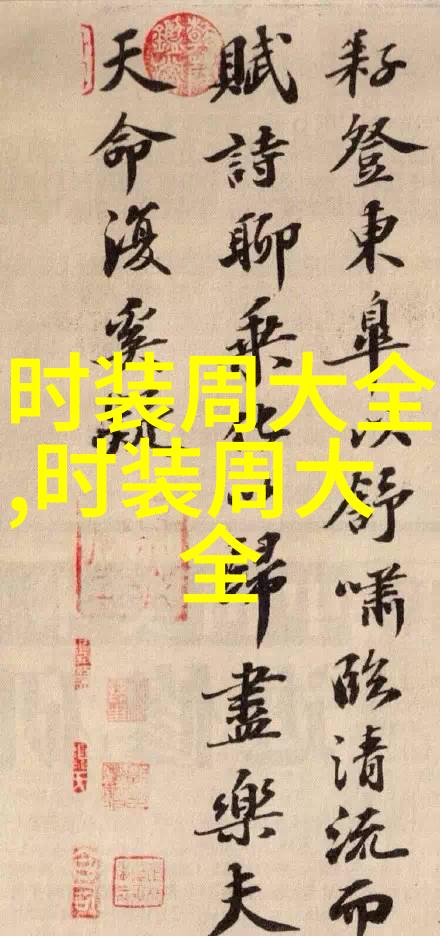 耔登東皐以舒嘯臨清流而
賦詩聊乘化以歸盡樂夫
天命復奚疑
时装周大全
,时装周大
全